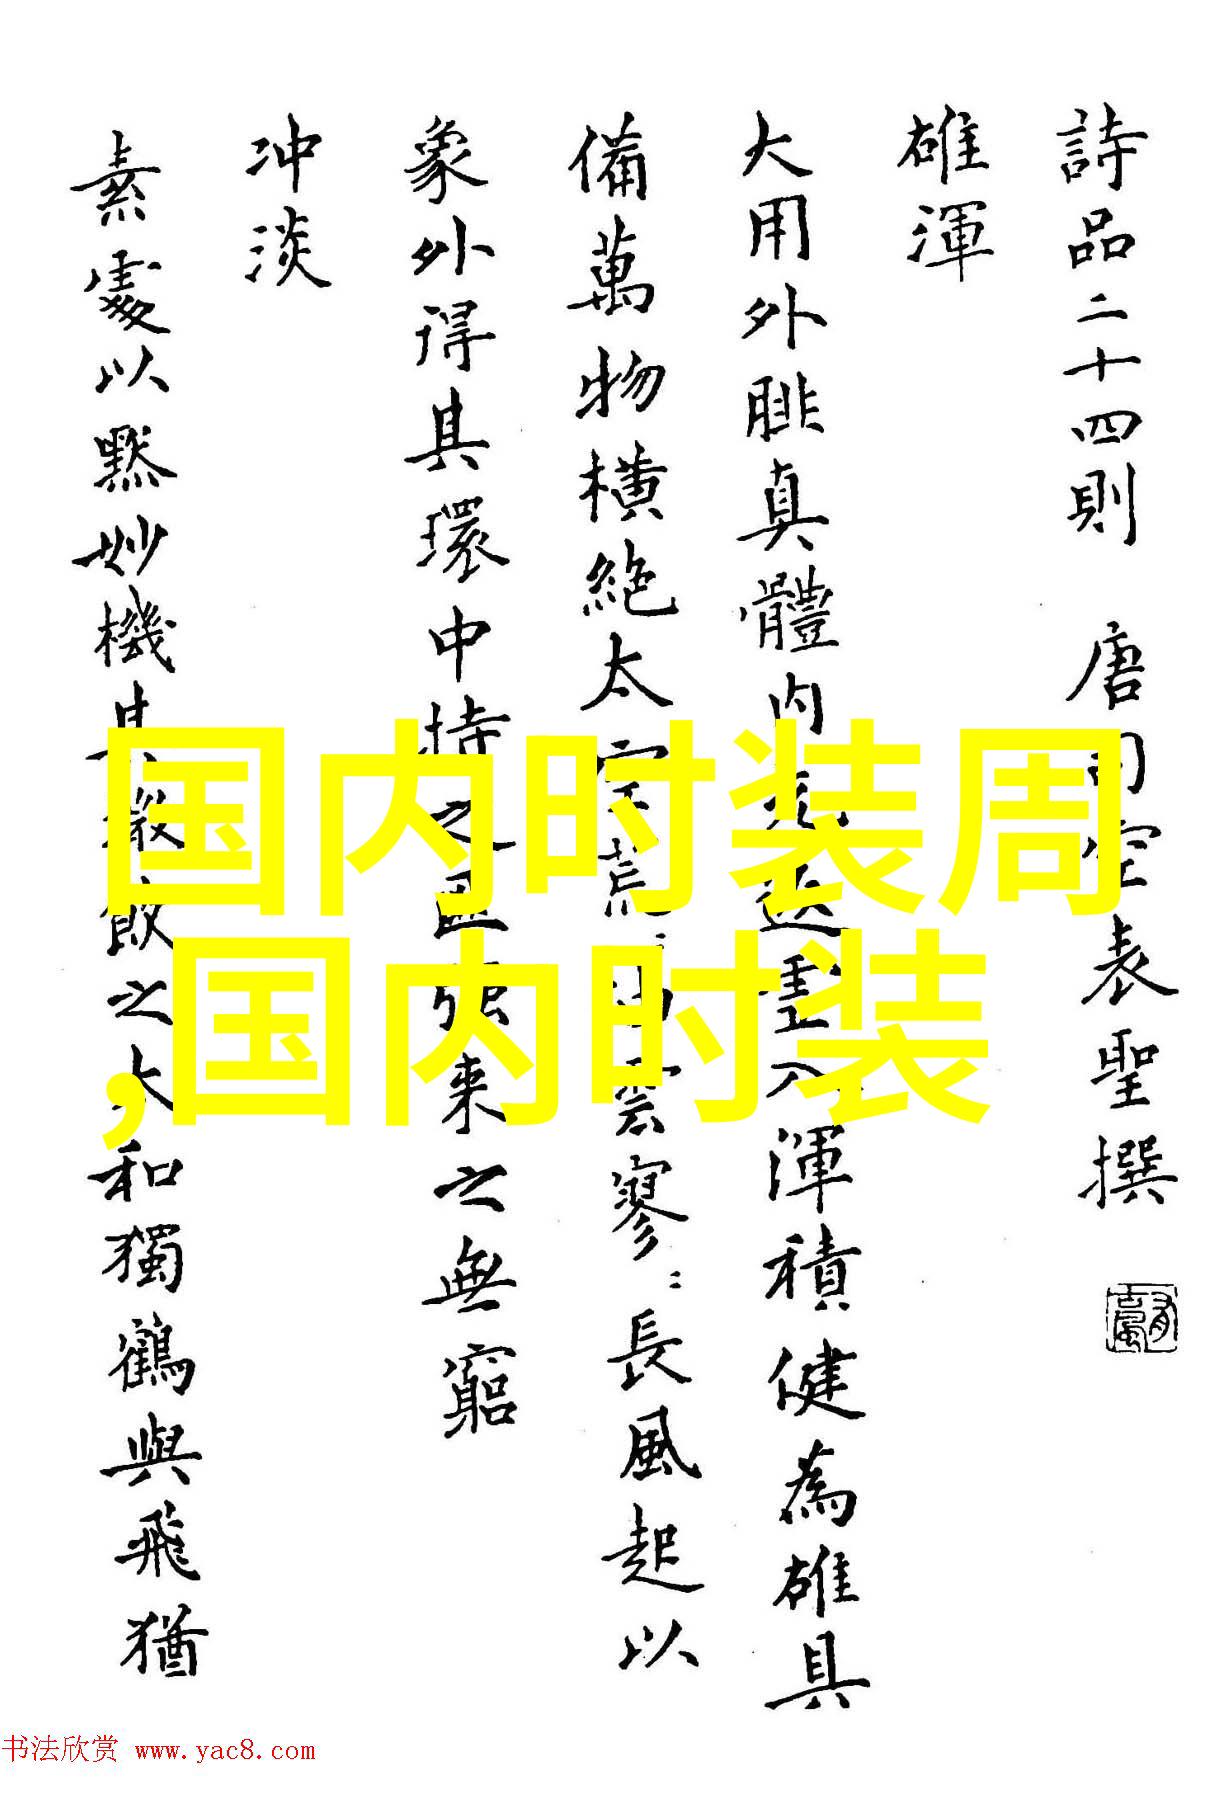 詩品二十四則 唐司空表聖撰
雄渾
大用外腓真體内充返虛入渾積健為雄具
備萬物橫絕太空荒〻油雲寥〻長風起以
象外得其環中持之匪強来之無窮
冲淡
素處以默妙機其微飲之太和獨鶴與飛猶
国内时装周
,国内时装
书法欣赏 www.yac8.com